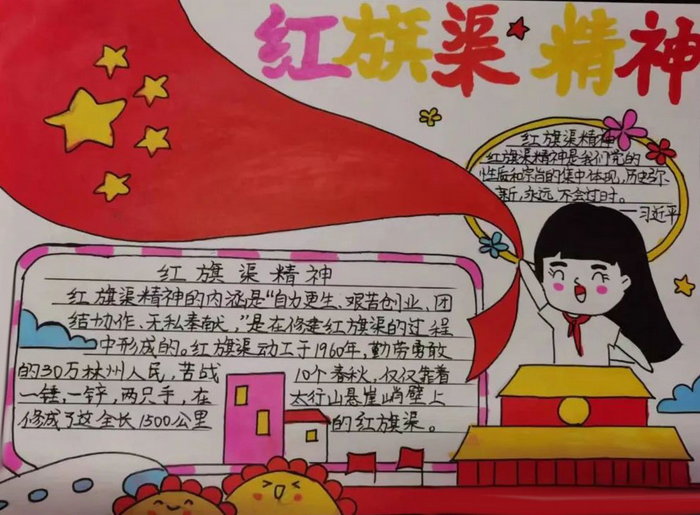 红旗渠精神
红旗渠精神
红旗渠精神是我们党的
性质和宗旨的集中体现,历史弥
新,永远不会过时。
—习近平
红旗渠精神
红旗渠精神的内涵是“自力更生、艰苦创业、团
结协作、无私奉献,”是在修建红旗渠的过程
中形成的。红旗渠动工于1960年,勤劳勇敢
的30万林州人民,苦战10个春秋,仅仅靠着
一锤,一铲,两只手,在太行山悬崖峭壁上
修成了这全长1500公里的红旗渠。